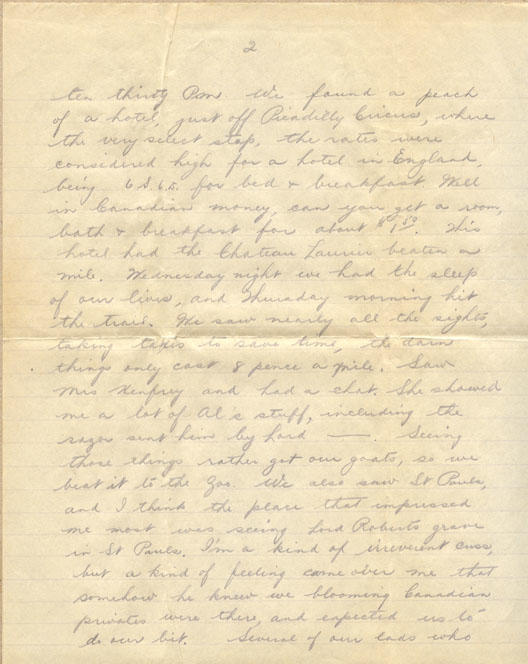 2
ten thirty P.m. We found a peach
of a hotel, just off Picadilly Circus, where
the very select stop, the rates were
considered high for a hotel in England,
being 6 S. for bed + breakfast. Well
in Canadian money, can you get a room,
bath + breakfast for about $1.50. This
hotel had the Chateau Laurier beaten a
mile. Wednesday night we had the sleep
of our lives, and Thursday morning hit
the trail. We saw nearly all the sights,
taking taxis to save time, the darn
things only cost 8 pence a mile. Saw
Mrs and had a chat. She showed
me a lot of Al's stuff, including the
razor sent him by hard —. Seeing
those things rather got our goats, so we
beat it to the Zoo. We also saw St Pauls,
and I think the place that impressed
me most was seeing Lord Roberts grave
in St Pauls. I'm a kind of irreverent cuss,
but a kind of feeling came over me that
somehow he knew we blooming Canadian
privates were there, and expected us to
do our bit. Several of our lads who